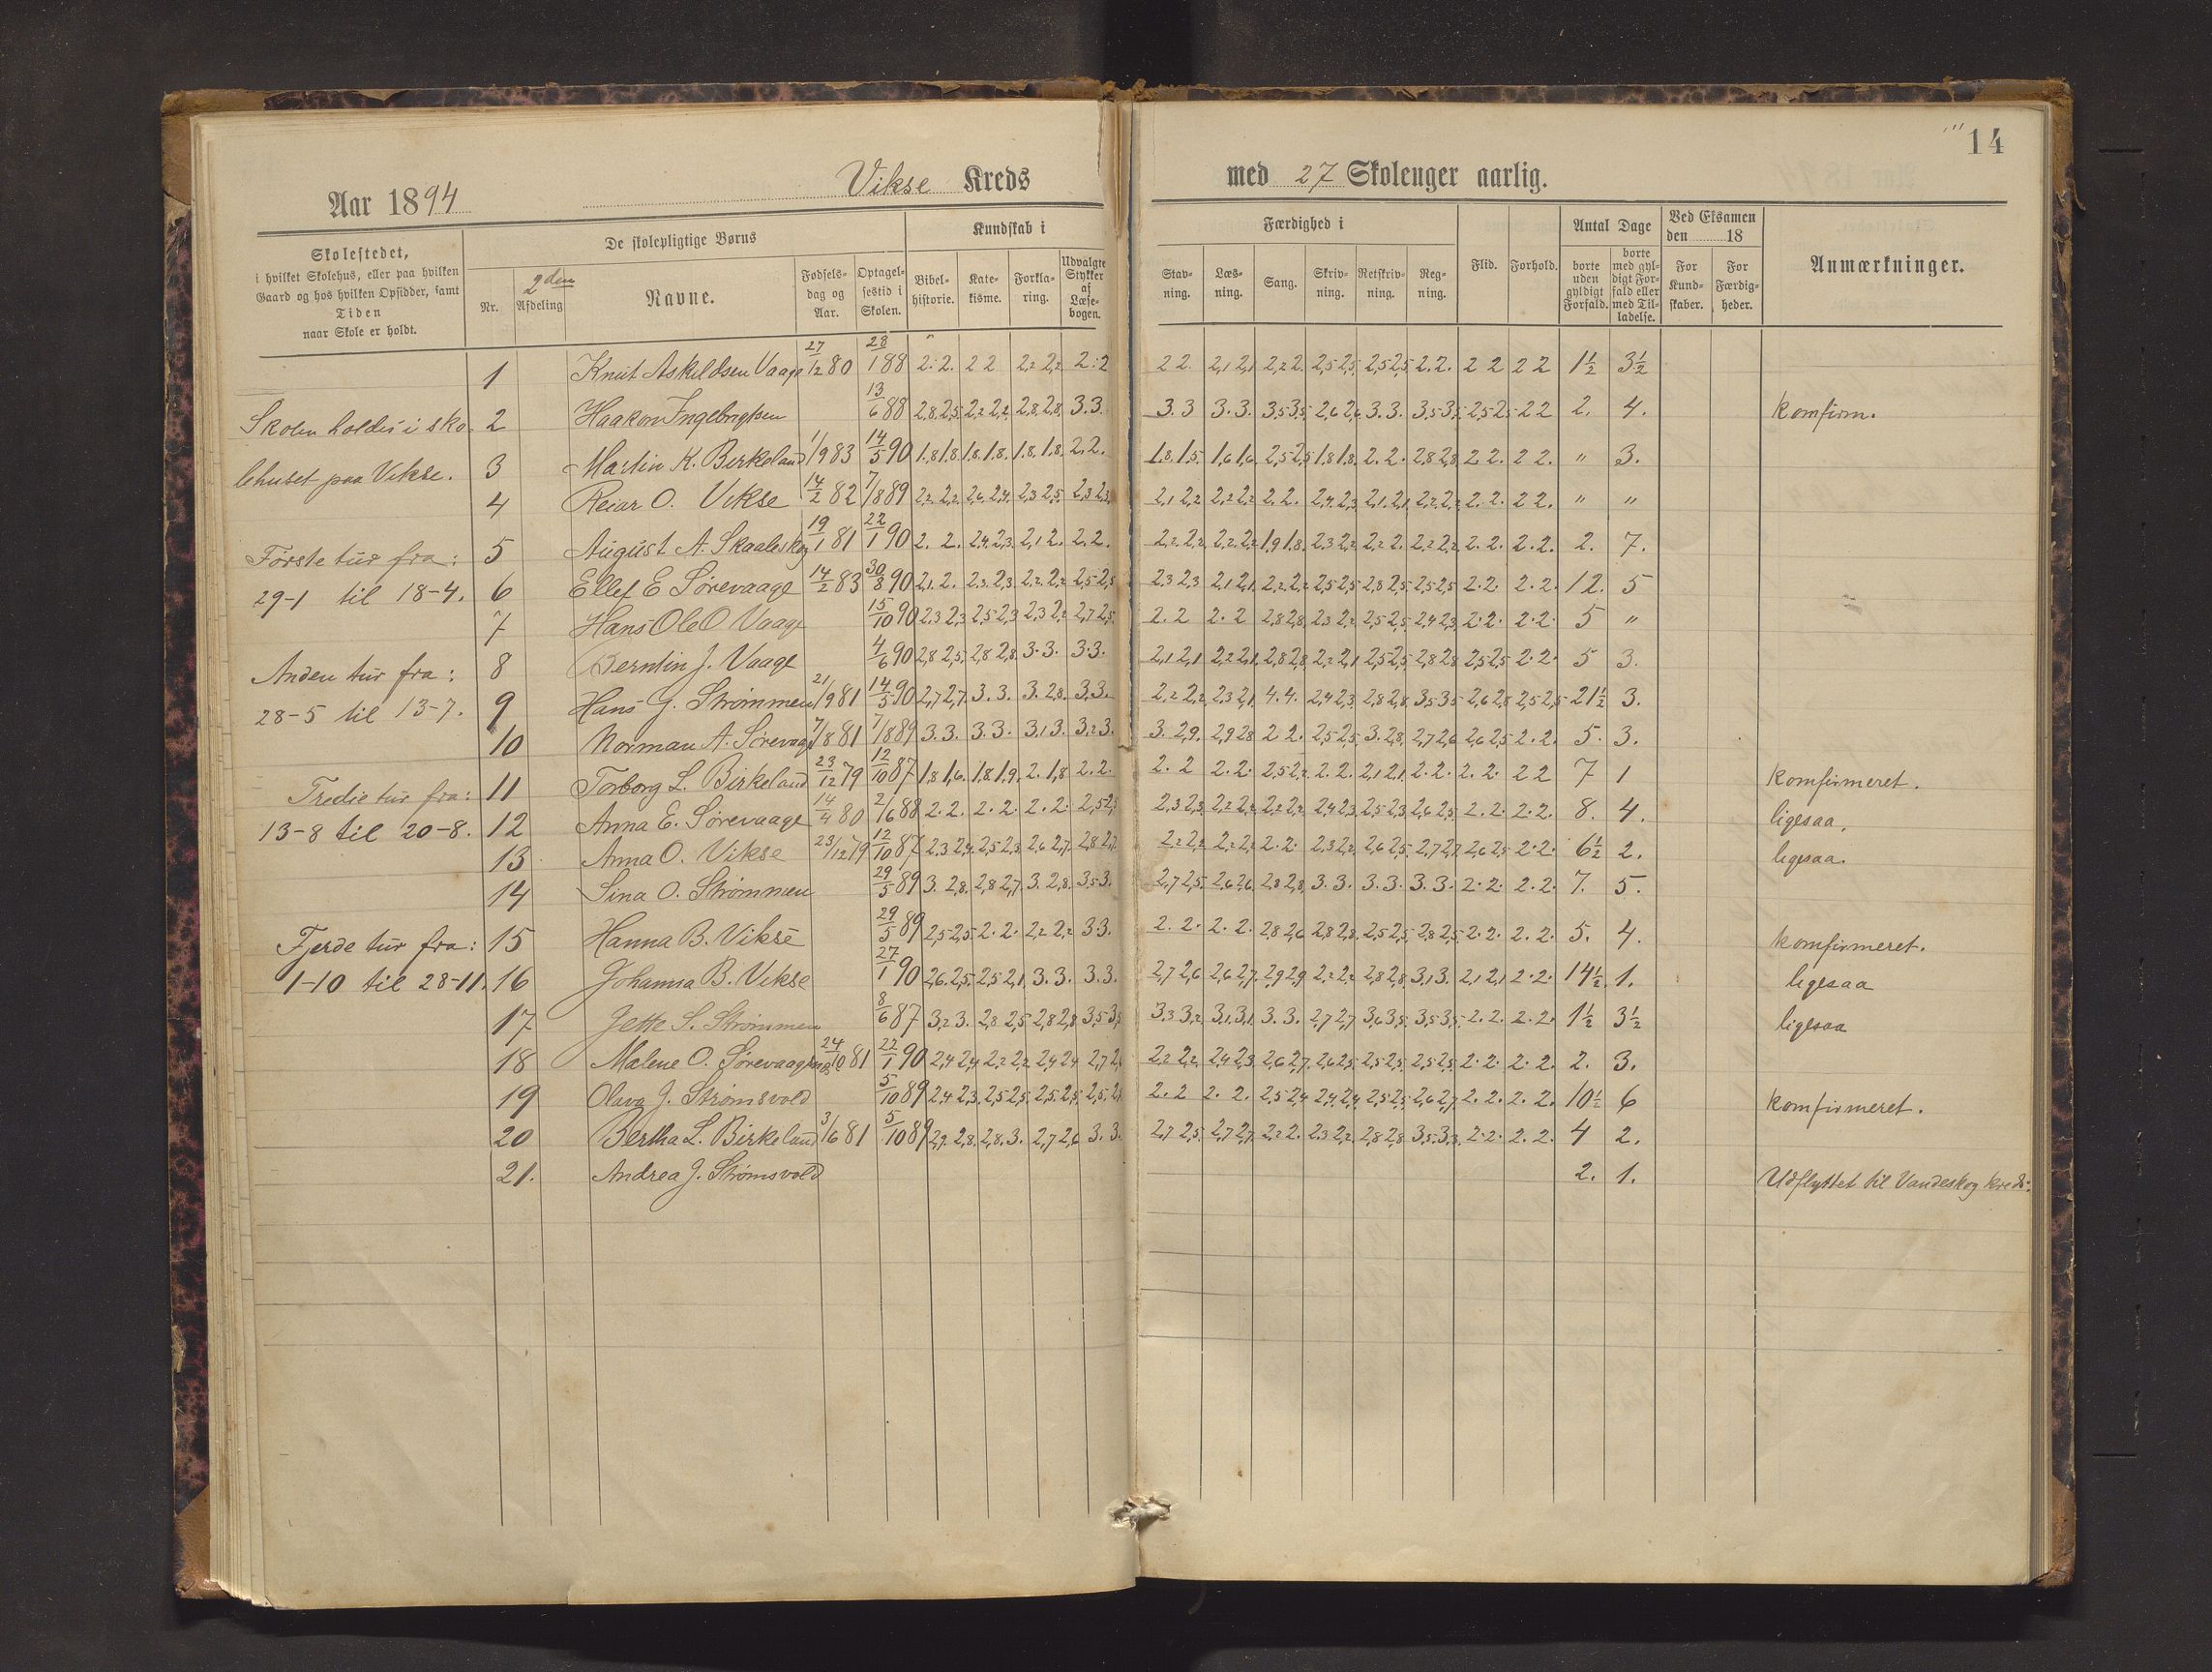 14
Aar 1894
Vikse Kreds
med 27 Skoleuger aarlig.
Skolestedet,
i hvilket Skolehus, eller paa hvilken
Gaard og hos hvilken Opsidder, samt
Tiden
naar Skole er holdt.
De skolepligtige Børns
Nr.
2den
Afdeling
Navne.
Fødsels-
dag og
Aar.
Optagel-
sestid i
Skolen.
Kundskab i
Bibel-
historie.
Kate-
kisme.
Forkla-
ring.
Udvalgte
Stykker
af
Læse-
bogen.
Færdighed i
Stav-
ning.
Læs-
ning.
Sang.
Skriv-
ning.
Retskriv-
ning.
Reg-
ning.
Flid.
Forhold.
Antal Dage
borte
uden
gyldigt
Forfald.
borte
med gyl-
digt For-
fald eller
med Til-
ladelse.
Ved Eksamen
den 18
For
Kund-
skaber.
For
Færdig-
heder.
Anmærkninger.
Skolen holdes i sko-
lehuset paa Vikse.
Første tur fra:
29-1 til 18-4.
Anden tur fra:
28-5 til 13-7.
Tredie tur fra:
13-8 til 20-8.
Fjerde tur fra:
1-10 til 28-11.
1 Knut Askildsen Vaage 27/12 80 28/1 88 2. 2. 2 2 2,2 2,2 2. 2 2 2 2,1 2,1 2,2 2 2,5 2,5 2,5 2,5 2. 2. 2 2 2 2 1½ 3½
2 Haakon Ingebrigtsen 13/6 88 2,8 2,5 2,2 2,2 2,8 2,8 3. 3. 3. 3 3. 3. 3,5 3,5 2,6 2,6 3. 3. 3,5 3,5 2,5 2,5 2 2 2. 4. komfirm.
3 Martin K. Birkeland 1/9 83 14/5 90 1,8 1,8 1,8 1,8 1,8 1,8 2. 2. 1,8 1,5 1,6 1,6 2,5 2,5 1,8 1,8 2. 2. 2,8 2,8 2. 2. 2 2. " 3.
4 Reiar O. Vikse 14/2 82 7/8 89 2,2 2,2 2,6 2,4 2,3 2,5 2,3 2,3 2,1 2,2 2,2 2,2 2. 2. 2,4 2,3 2,1 2,1 2,2 2,2 2. 2. 2 2. " "
5 August A. Skaaleskog 19/1 81 22/1 90 2. 2. 2,4 2,3 2,1 2. 2. 2. 2,2 2,2 2,2 2,2 1,9 1,8 2,3 2,2 2,2 2. 2,2 2,2 2. 2. 2. 2. 2. 7.
6 Ellef E Sørevaage 14/2 83 30/8 90 2,1 2. 2,3 2,3 2,2 2,2 2,5 2,5 2,3 2,3 2,1 2,1 2,2 2,2 2,5 2,5 2,8 2,5 2,5 2,5 2. 2. 2. 2. 12. 5
7 Hans Ole O Vaage 15/10 90 2,3 2,3 2,5 2,3 2,3 2,2 2,7 2,5 2. 2 2. 2 2,8 2,8 2,3 2,2 2,5 2,5 2,4 2,3 2. 2. 2. 2. 5 "
8 Berntin J. Vaage 4/6 90 2,8 2,5 2,8 2,8 3. 3. 3. 3. 2,1 2,1 2,2 2,1 2,8 2,8 2,2 2,1 2,5 2,5 2,8 2,8 2,5 2,5 2. 2. 5 3.
9 Hans G. Strømmen 21/9 81 14/5 90 2,7 2,7 3. 3. 3. 2,8 3. 3. 2,2 2,2 2,3 2,1 4. 4. 2,4 2,3 2,8 2,8 3,5 3,5 2,6 2,8 2,5 2,5 21½ 3.
10 Norman A. Sørevaage 7/8 81 7/8 89 3. 3. 3. 3. 3,1 3. 3,2 3. 3. 2,9 2,9 2,8 2 2. 2,5 2,5 3. 2,8 2,7 2,6 2,6 2,5 2. 2. 5. 3.
11 Torborg L. Birkeland 23/12 79 12/10 87 1,8 1,6 1,8 1,9 2. 1,8 2. 2. 2. 2 2. 2. 2,5 2,2 2. 2. 2,1 2,1 2. 2. 2. 2. 2 2 7 1 komfirmeret.
12 Anna E. Sørevaage 14/4 80 2/6 88 2. 2. 2. 2. 2. 2. 2,5 2,5 2,3 2,3 2,2 2,2 2,2 2,2 2,4 2,3 2,5 2,3 2,6 2,5 2. 2. 2. 2. 8. 4. ligesaa.
13 Anna O. Vikse 23/12 79 12/10 87 2,3 2,4 2,5 2,3 2,6 2,7 2,8 2,7 2,2 2,2 2,2 2,2 2. 2. 2,3 2,2 2,6 2,5 2,7 2,7 2,6 2,5 2. 2. 6½ 2. ligesaa.
14 Sina O. Strømmen 29/5 89 3. 2,8 2,8 2,7 3. 2,8 3,5 3. 2,7 2,5 2,6 2,6 2,8 2,8 3. 3. 3. 3. 3. 3. 2. 2. 2. 2. 7. 5.
15 Hanna B. Vikse 29/5 89 2,5 2,5 2. 2. 2,2 2,2 3. 3. 2. 2. 2. 2. 2,8 2,6 2,8 2,8 2,5 2,5 2,8 2,5 2. 2. 2. 2. 5. 4. komfirmeret.
16 Johanna B. Vikse 27/1 90 2,6 2,5 2,5 2,1 3. 3. 3. 3. 2,7 2,6 2,6 2,7 2,9 2,9 2,2 2,2 2,8 2,8 3,1 3. 2,1 2,1 2. 2. 14½ 1. ligesaa
17 Jette S. Strømmen 8/6 87 3,2 3. 2,8 2,5 2,8 2,8 3,5 3,5 3,3 3,2 3,1 3,1 3. 3. 2,7 2,7 3,6 3,5 3,5 3,5 2. 2. 2. 2. 1½ 3½ ligesaa
18 Malene O. Sørevaagenes 24/10 81 22/1 90 2,4 2,4 2,2 2,2 2,4 2,4 2,7 2,2 2,2 2,4 2,3 2,6 2,7 2,6 2,5 2,5 2,5 2,5 2,5 2. 2. 2. 2. 2. 3.
19 Olava J. Strømsvold 5/10 89 2,4 2,3 2,5 2,5 2,5 2,5 2,5 2. 2 2. 2. 2,5 2,4 2,4 2,4 2,5 2,5 2,6 2,7 2. 2. 2. 2. 10½ 6 komfirmeret.
20 Bertha L. Birkeland 3/6 81 5/10 89 2,9 2,8 2,8 3. 2,7 2,6 3. 3. 2,7 2,5 2,7 2,7 2,2 2. 2,3 2,2 2,8 2,8 3,5 3,3 2. 2. 2. 2. 4 2.
21. Andrea J. Strømsvold 2. 1. Udflyttet til Vandeskog kreds.